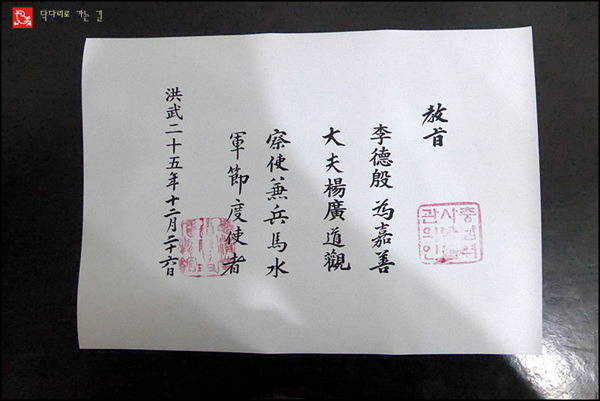 닥다리로 가는 길
敎旨
李德殷爲嘉善
大夫楊廣道觀
察使兼兵馬水
軍節度使者
洪武二十五年十二月二十六日
충남역
사박물
관의인